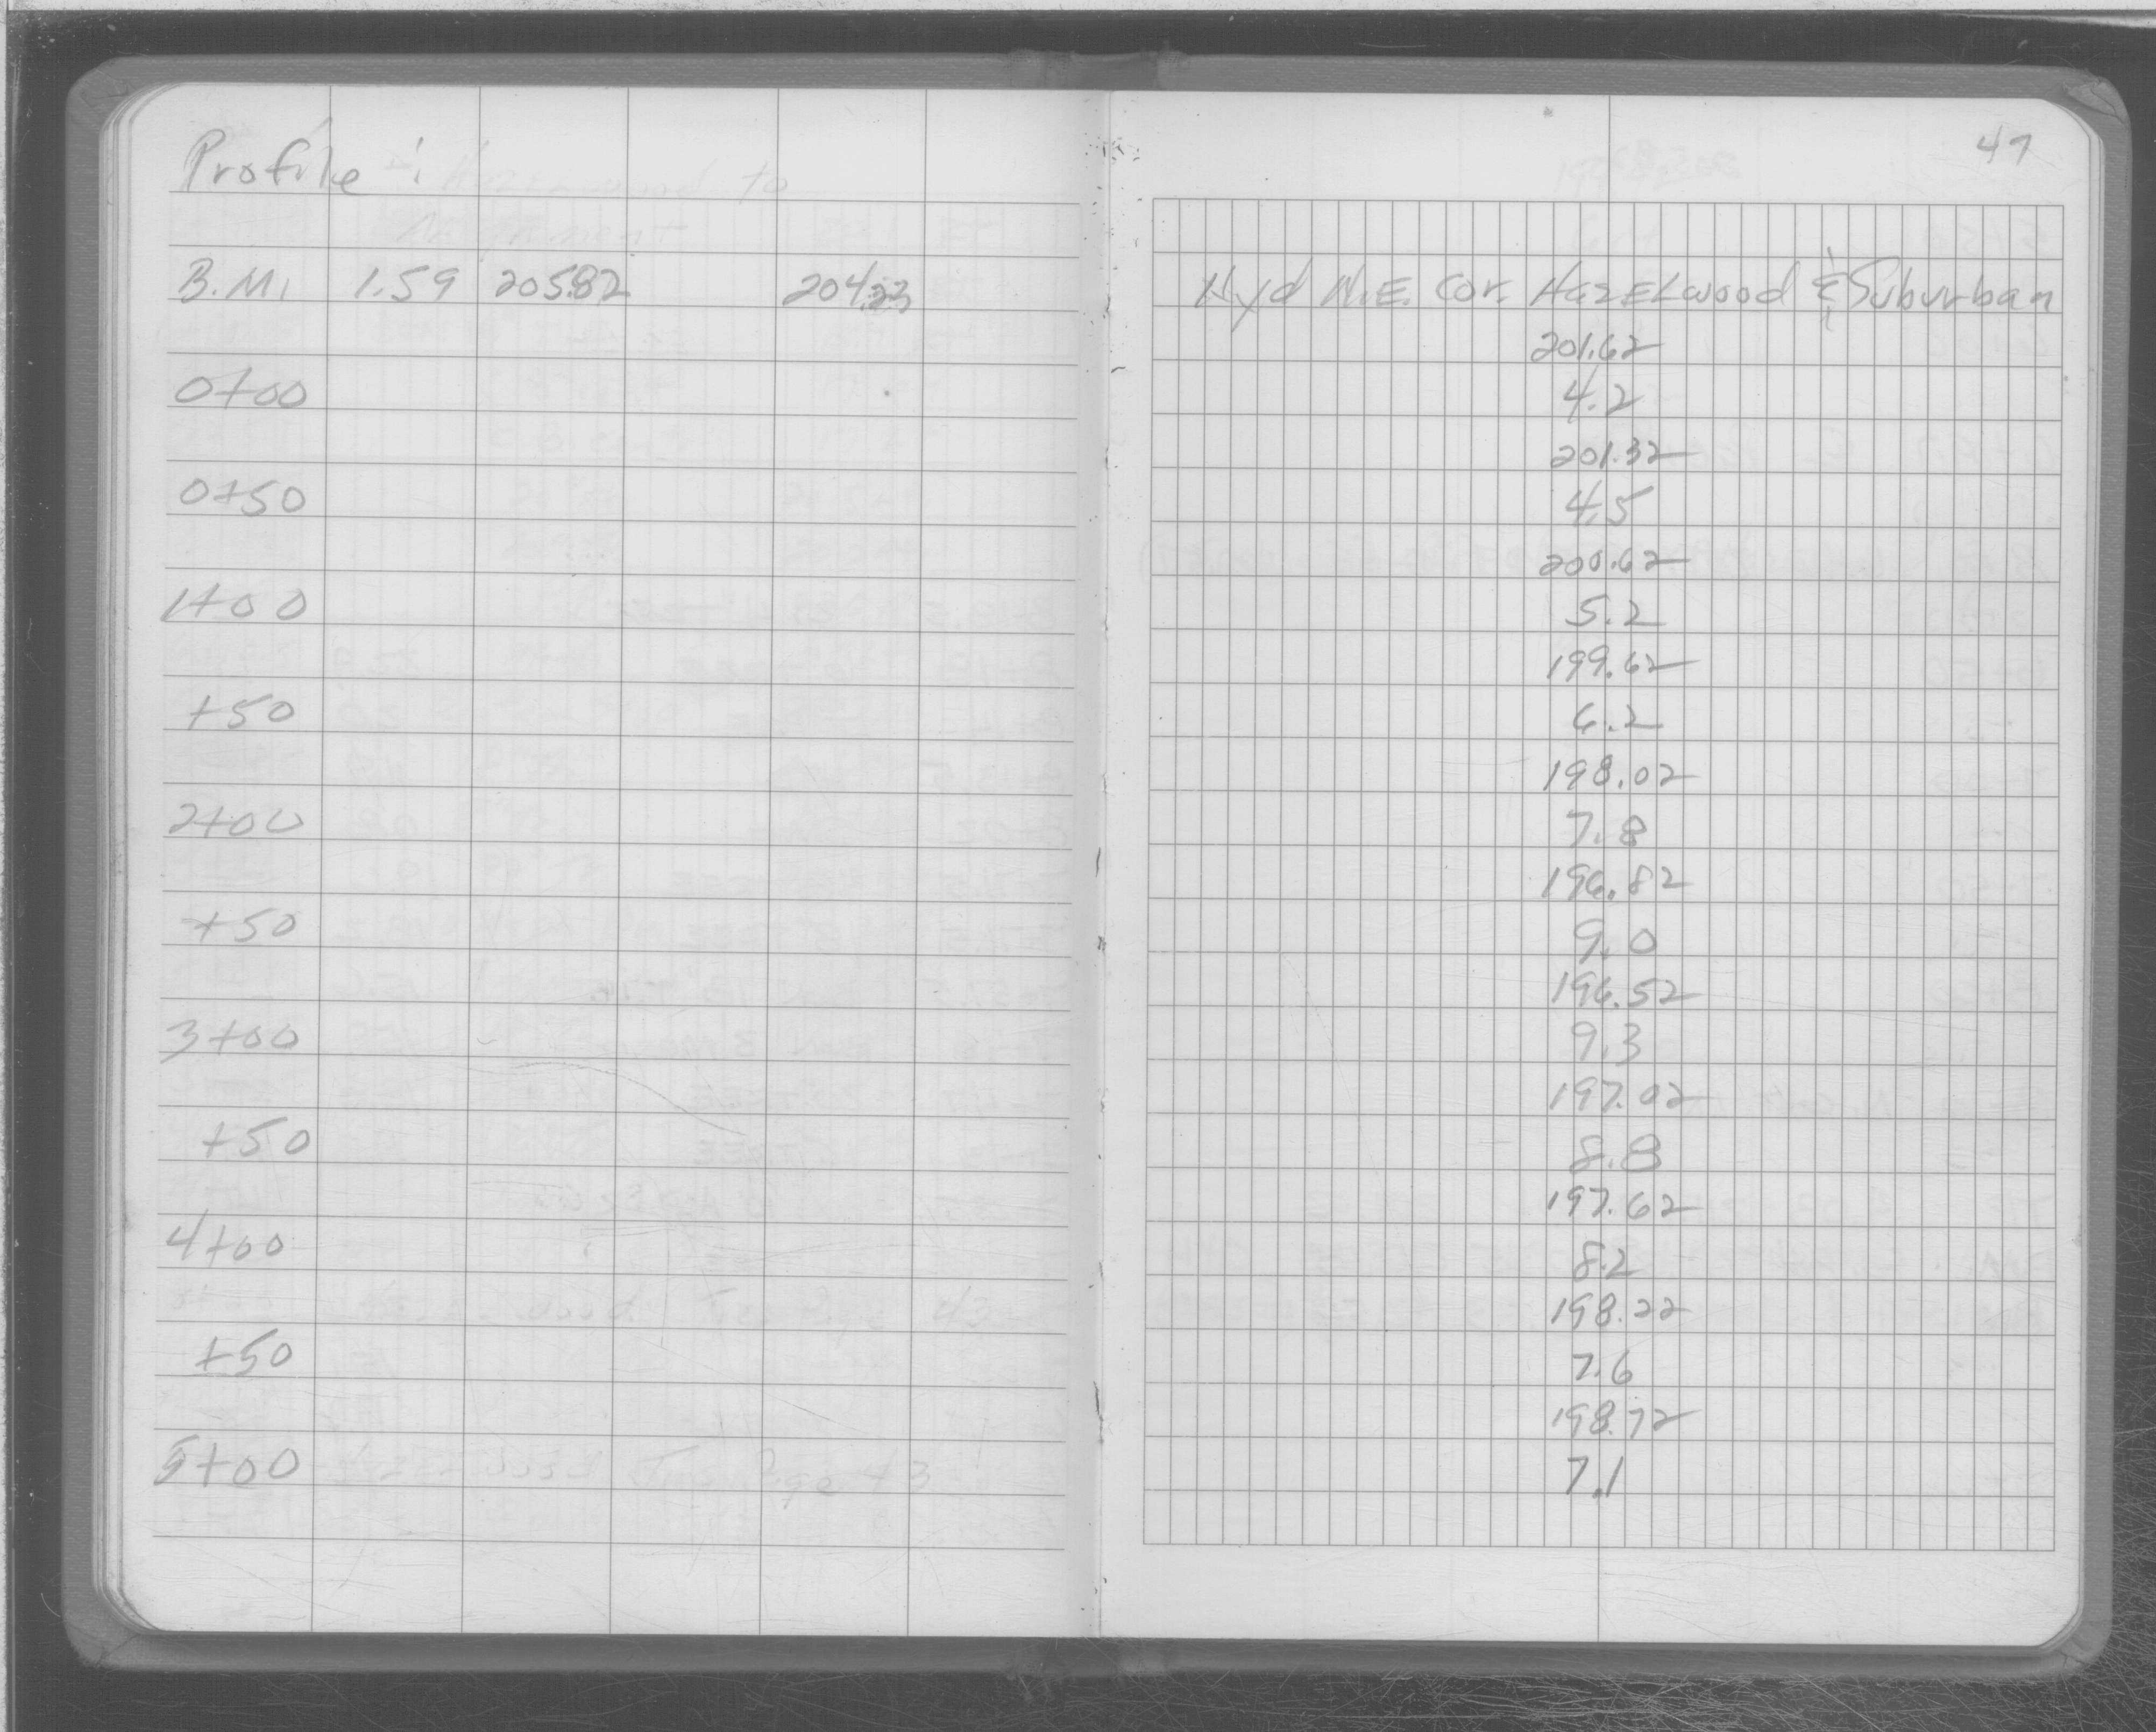 47
Profile:
B.M. 1.59 205.82 204.23 Hyd N.E. Cor. Hazelwood & Suburban
201.62
0+00 4.2
201.32
0+50 4.5
200.62
1+00 5.2
199.62
+50 6.2
198.02
2+00 7.8
196.82
+50 9.0
196.52
3+00 9.3
197.02
+50 8.8
197.62
4+00 8.2
198.22
+50 7.6
198.72
5+00 7.1